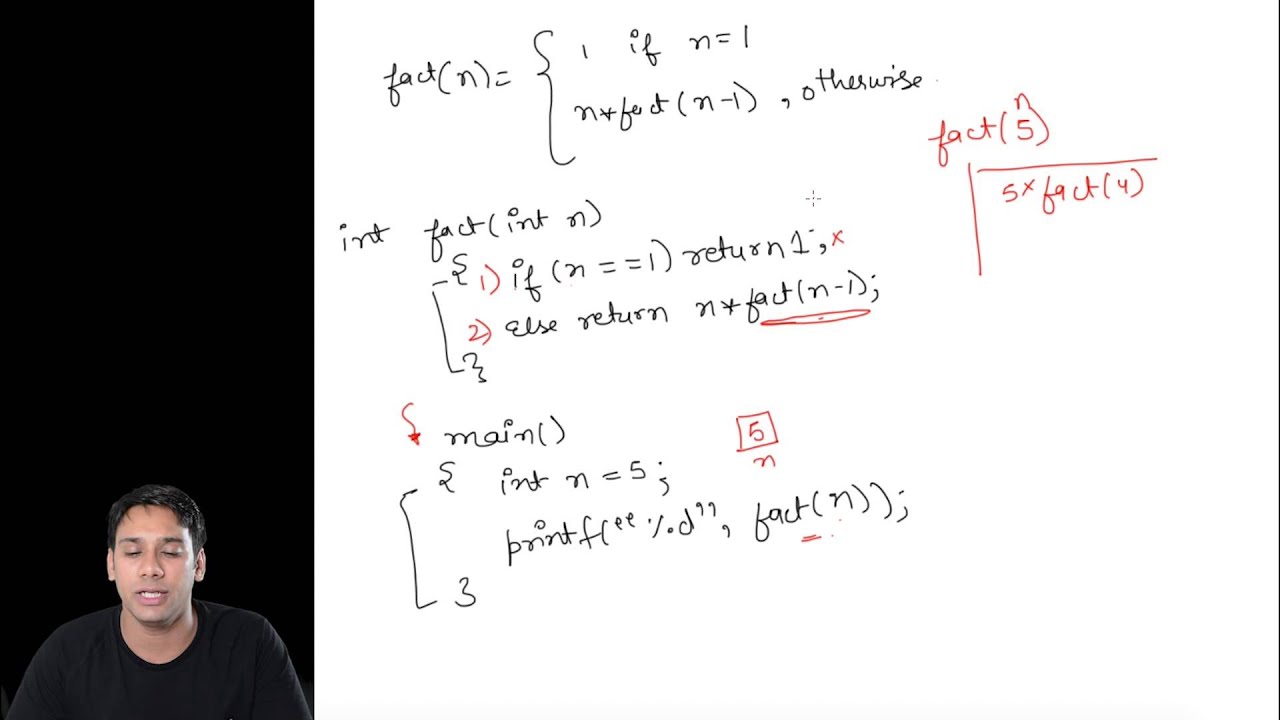 fact(n) = { 1 if n=1
n*fact(n-1) , otherwise
n
fact(5)
5 × fact(4)
int fact(int n)
{
1) if (n == 1) return 1; ×
2) Else return n*fact(n-1);
}
main()
{ int n = 5;
5
n
printf("%d", fact(n));
}